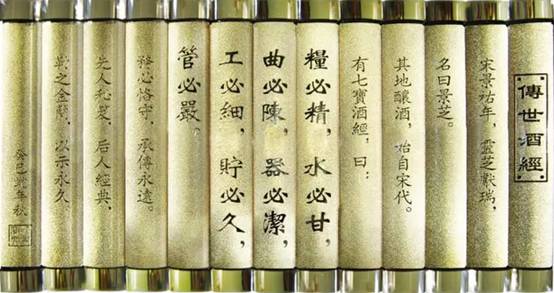 傳世酒經
宋景祐年，靈芝獻瑞，
名曰景芝。
其地釀酒，始自宋代。
有七寶酒經，曰：
糧必精，水必甘，
曲必陳，器必潔，
工必細，貯必久，
管必嚴。
務必恪守，承傳永遠。
先人秘笈，后人經典，
勒之金簡，以示永久。
癸巳年秋